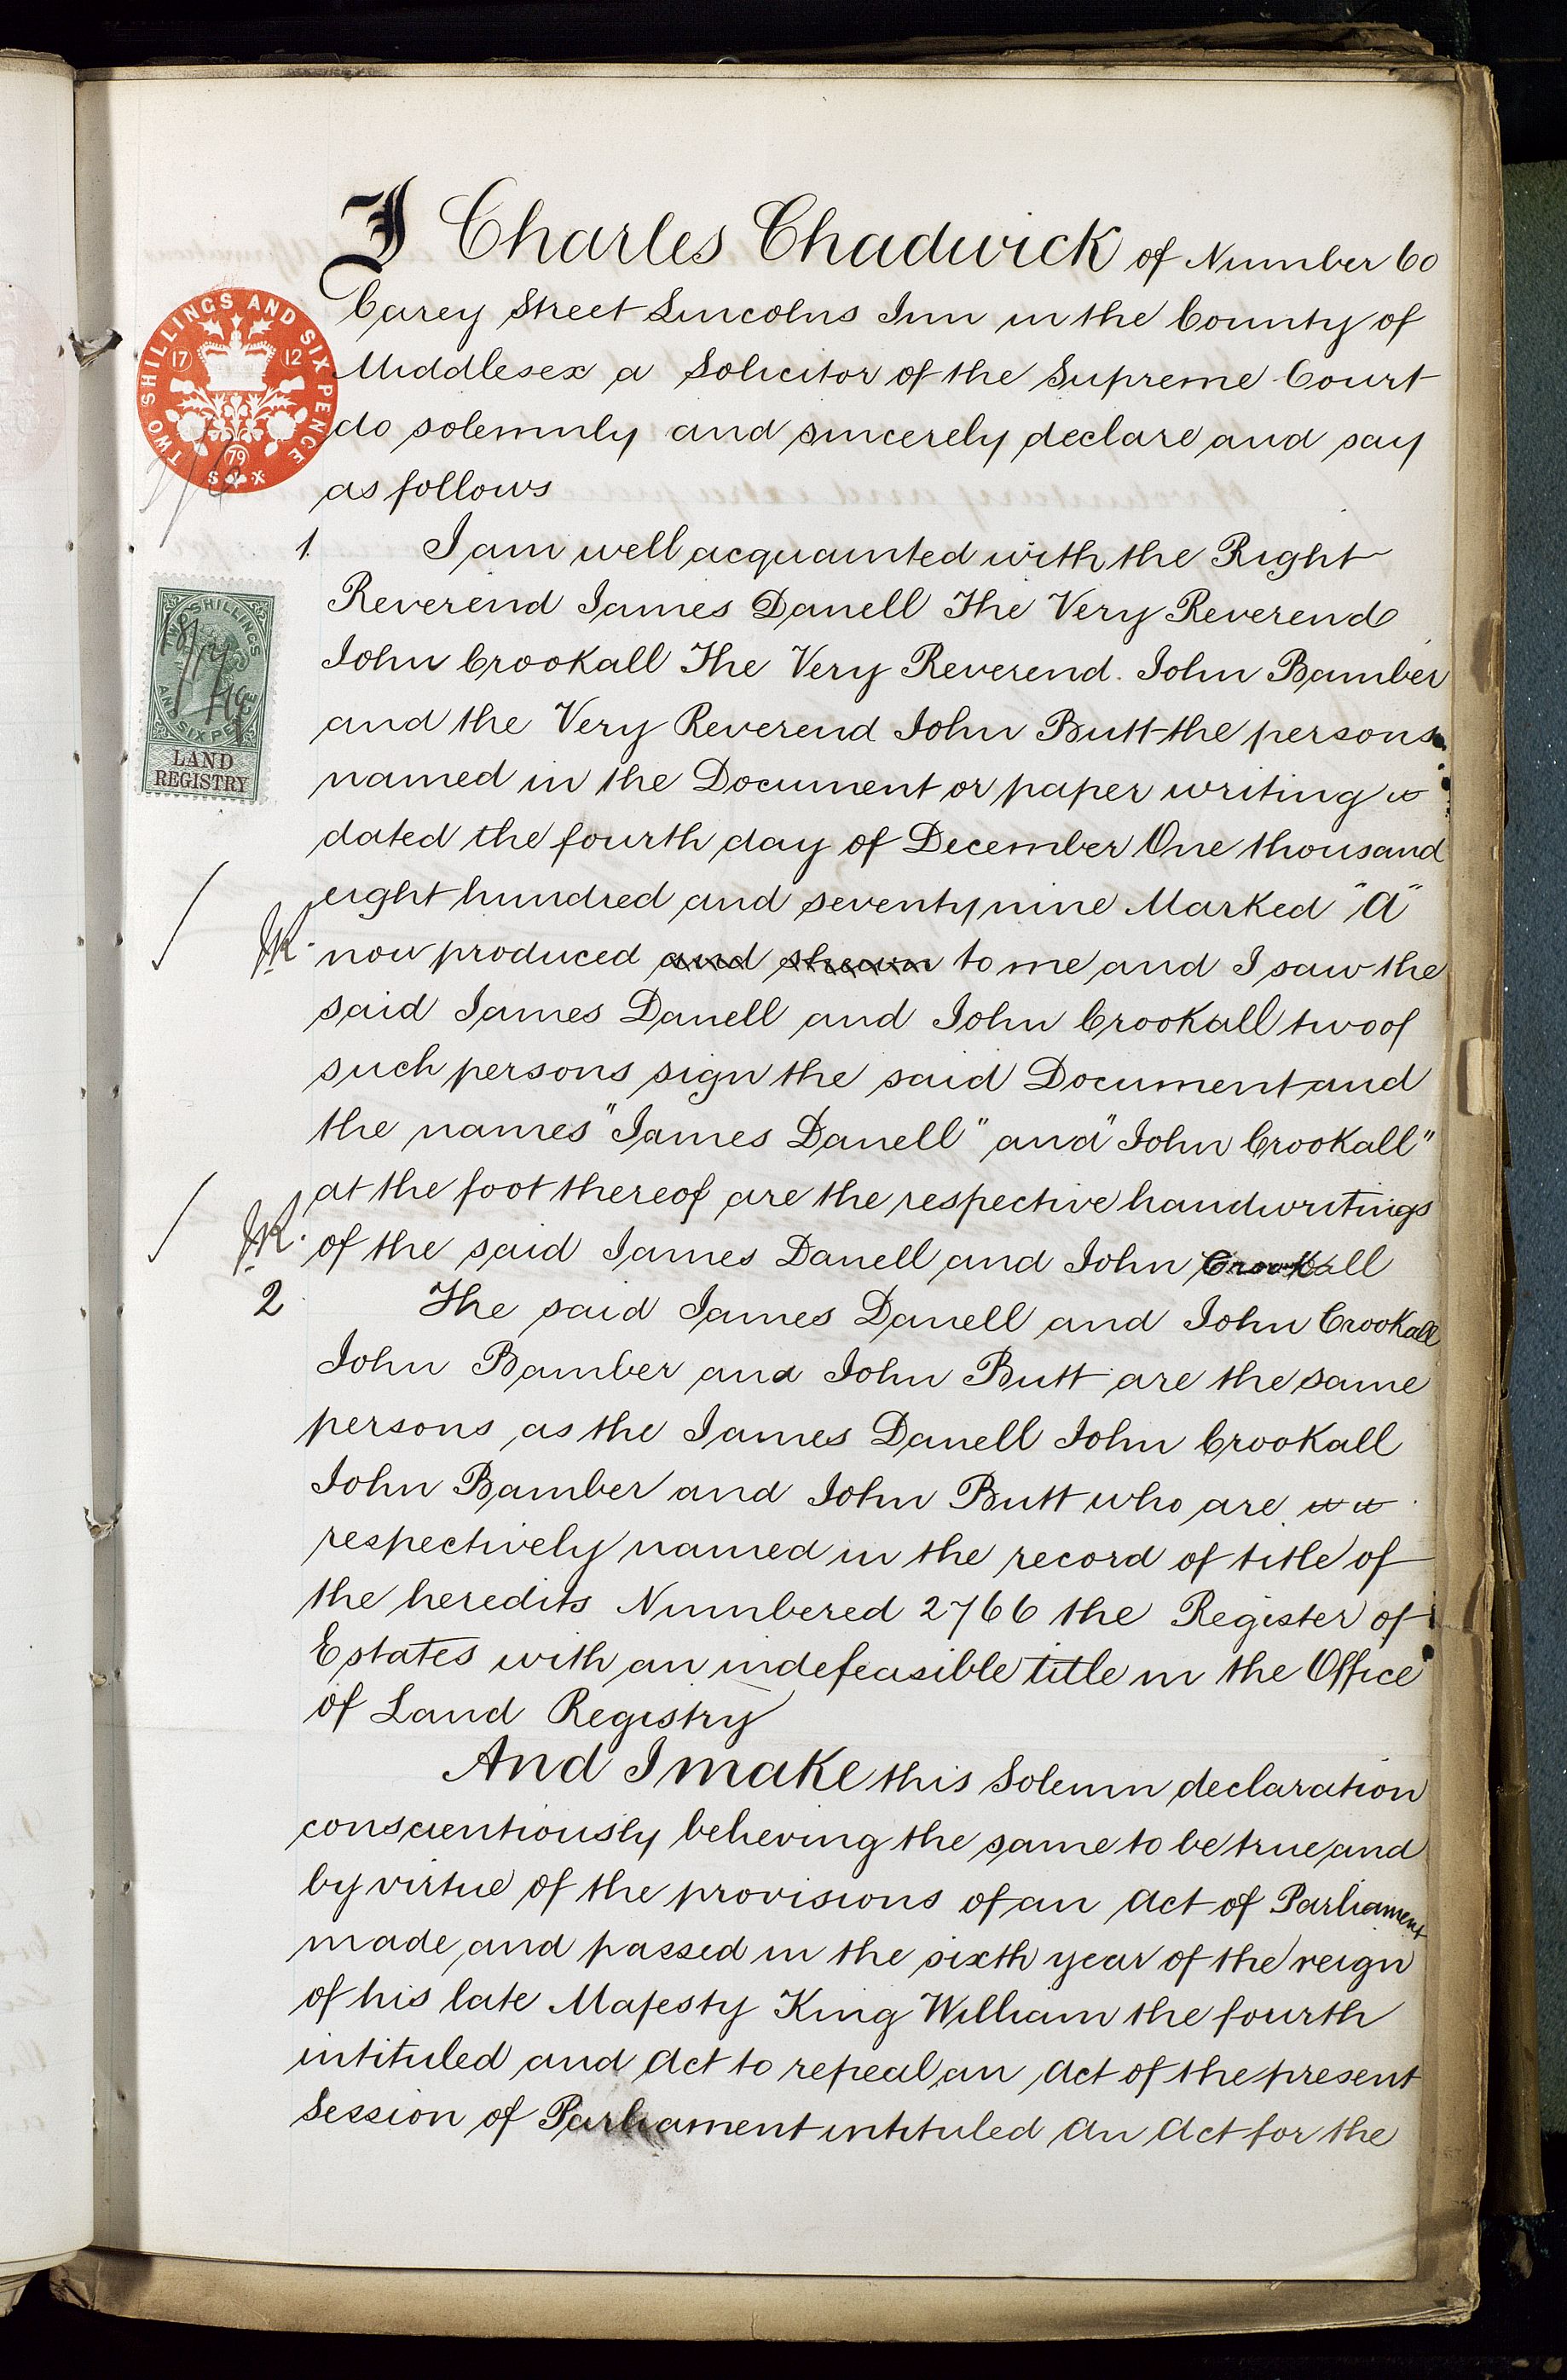 I Charles Chadwick of Number 60
Carey Street Lincolns Inn in the County of
Middlesex a Solicitor of the Supreme Court
do solemnly and sincerely declare and say
as follows
TWO SHILLINGS AND SIX PENCE
17 12
79
1. I am well acquainted with the Right
Reverend James Danell The Very Reverend
John Crookall The Very Reverend John Bamber
and the Very Reverend John Butt the persons
TWO SHILLINGS AND SIXPENCE
LAND REGISTRY
named in the Document or paper writing
dated the fourth day of December One thousand
eight hundred and seventy nine Marked "A"
now produced and shewn to me and I saw the
said James Danell and John Crookall two of
such persons sign the said Document and
the names "James Danell" and "John Crookall"
at the foot thereof are the respective handwritings
of the said James Danell and John Crookall
2 The said James Danell and John Crookall
John Bamber and John Butt are the same
persons as the James Danell John Crookall
John Bamber and John Butt who are
respectively named in the record of title of
the heredits Numbered 2766 the Register of
Estates with an indefeasible title in the Office
of Land Registry
And I make this Solemn declaration
conscientiously believing the same to be true and
by virtue of the provisions of an Act of Parliament
made and passed in the sixth year of the reign
of his late Majesty King William the fourth
intituled and Act to repeal an Act of the present
Session of Parliament intituled An Act for the